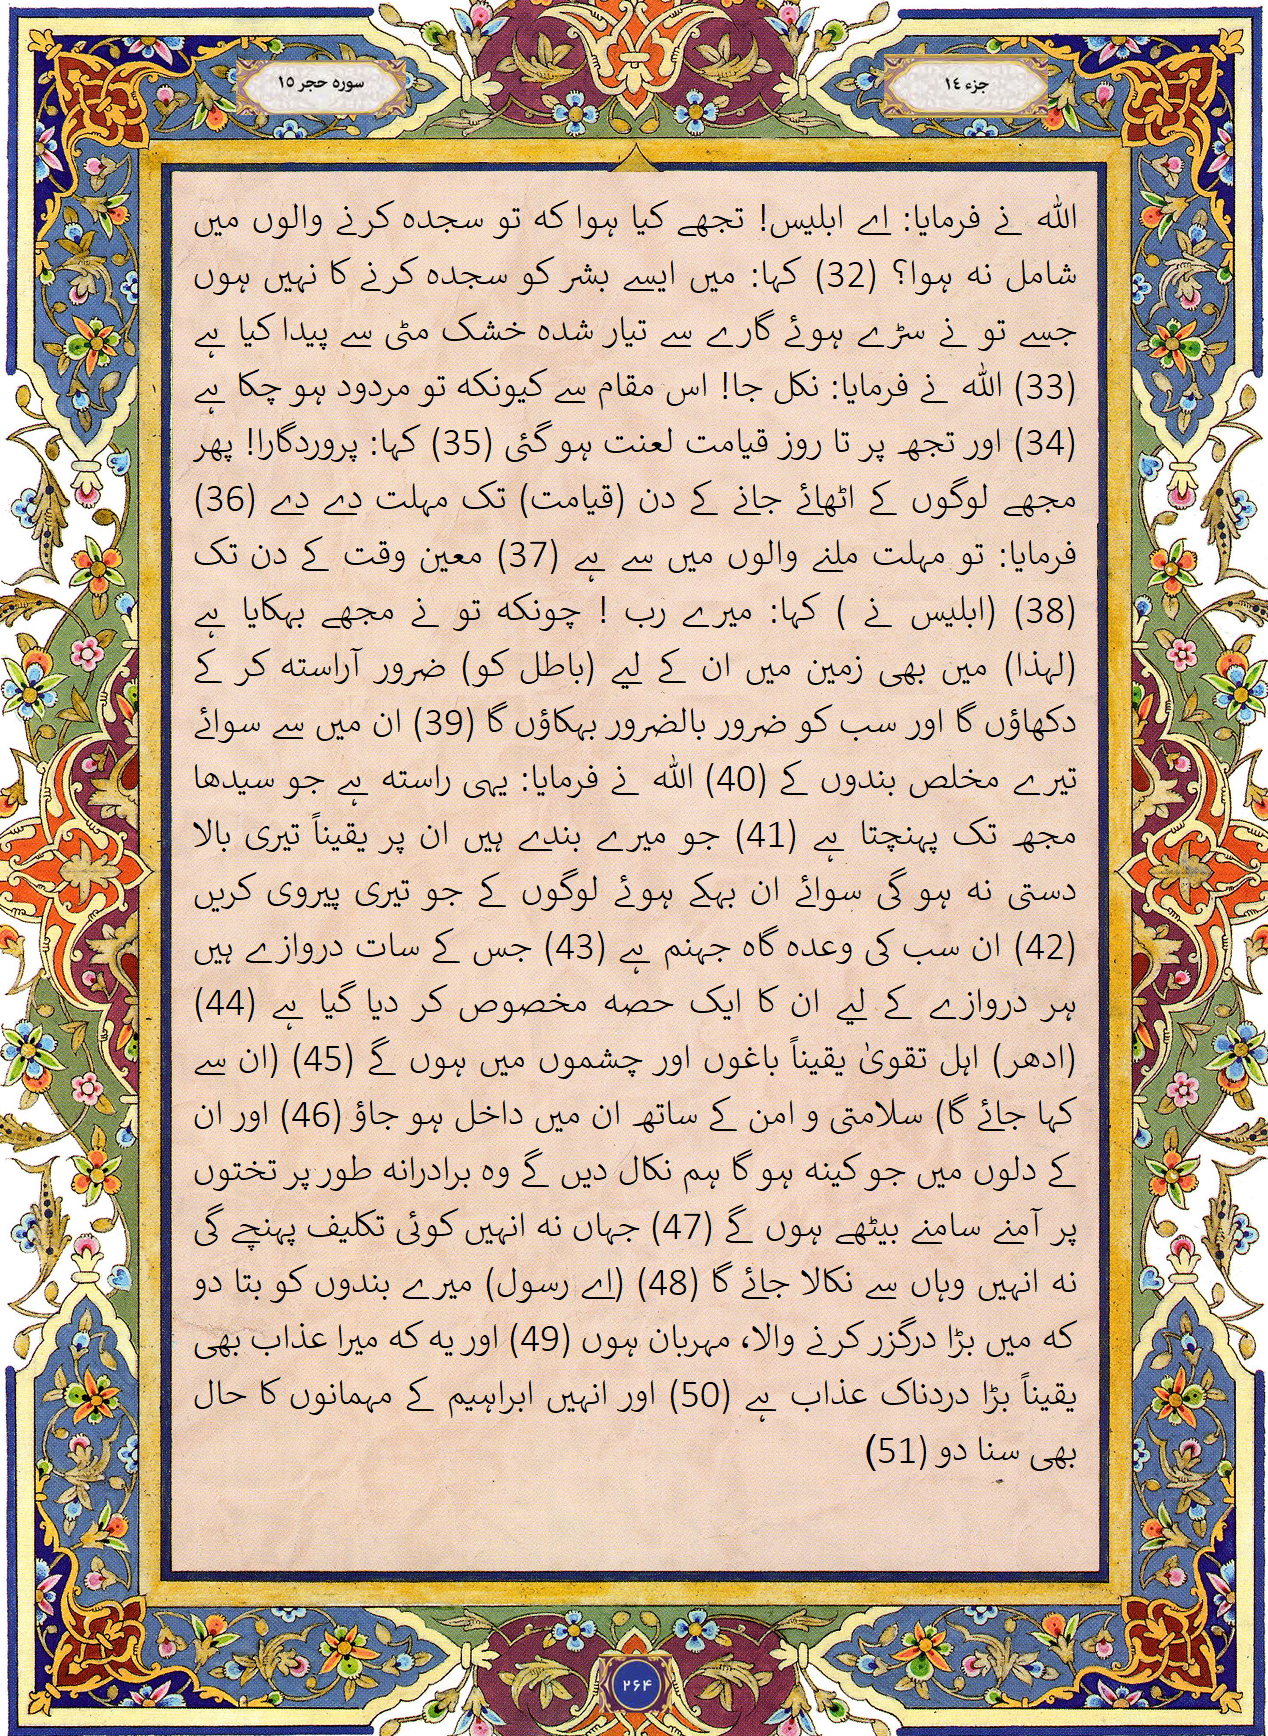 جزء ١٤
سوره حجر ١٥
اللہ نے فرمایا: اے ابلیس! تجھے کیا ہوا کہ تو سجدہ کرنے والوں میں
شامل نہ ہوا؟ (32) کہا: میں ایسے بشر کو سجدہ کرنے کا نہیں ہوں
جسے تو نے سڑے ہوئے گارے سے تیار شدہ خشک مٹی سے پیدا کیا ہے
(33) اللہ نے فرمایا: نکل جا! اس مقام سے کیونکہ تو مردود ہو چکا ہے
(34) اور تجھ پر تا روز قیامت لعنت ہو گئی (35) کہا: پروردگارا! پھر
مجھے لوگوں کے اٹھائے جانے کے دن (قیامت) تک مہلت دے دے (36)
فرمایا: تو مہلت ملنے والوں میں سے ہے (37) معین وقت کے دن تک
(38) (ابلیس نے ) کہا: میرے رب ! چونکہ تو نے مجھے بہکایا ہے
(لہذا) میں بھی زمین میں ان کے لیے (باطل کو) ضرور آراستہ کر کے
دکھاؤں گا اور سب کو ضرور بالضرور بہکاؤں گا (39) ان میں سے سوائے
تیرے مخلص بندوں کے (40) اللہ نے فرمایا: یہی راستہ ہے جو سیدھا
مجھ تک پہنچتا ہے (41) جو میرے بندے ہیں ان پر یقیناً تیری بالا
دستی نہ ہو گی سوائے ان بہکے ہوئے لوگوں کے جو تیری پیروی کریں
(42) ان سب کی وعدہ گاہ جہنم ہے (43) جس کے سات دروازے ہیں
ہر دروازے کے لیے ان کا ایک حصہ مخصوص کر دیا گیا ہے (44)
(ادھر) اہل تقویٰ یقیناً باغوں اور چشموں میں ہوں گے (45) (ان سے
کہا جائے گا) سلامتی و امن کے ساتھ ان میں داخل ہو جاؤ (46) اور ان
کے دلوں میں جو کینہ ہو گا ہم نکال دیں گے وہ برادرانہ طور پر تختوں
پر آمنے سامنے بیٹھے ہوں گے (47) جہاں نہ انہیں کوئی تکلیف پہنچے گی
نہ انہیں وہاں سے نکالا جائے گا (48) (اے رسول) میرے بندوں کو بتا دو
کہ میں بڑا درگزر کرنے والا، مہربان ہوں (49) اور یہ کہ میرا عذاب بھی
یقیناً بڑا دردناک عذاب ہے (50) اور انہیں ابراہیم کے مہمانوں کا حال
بھی سنا دو (51)
۲۶۴